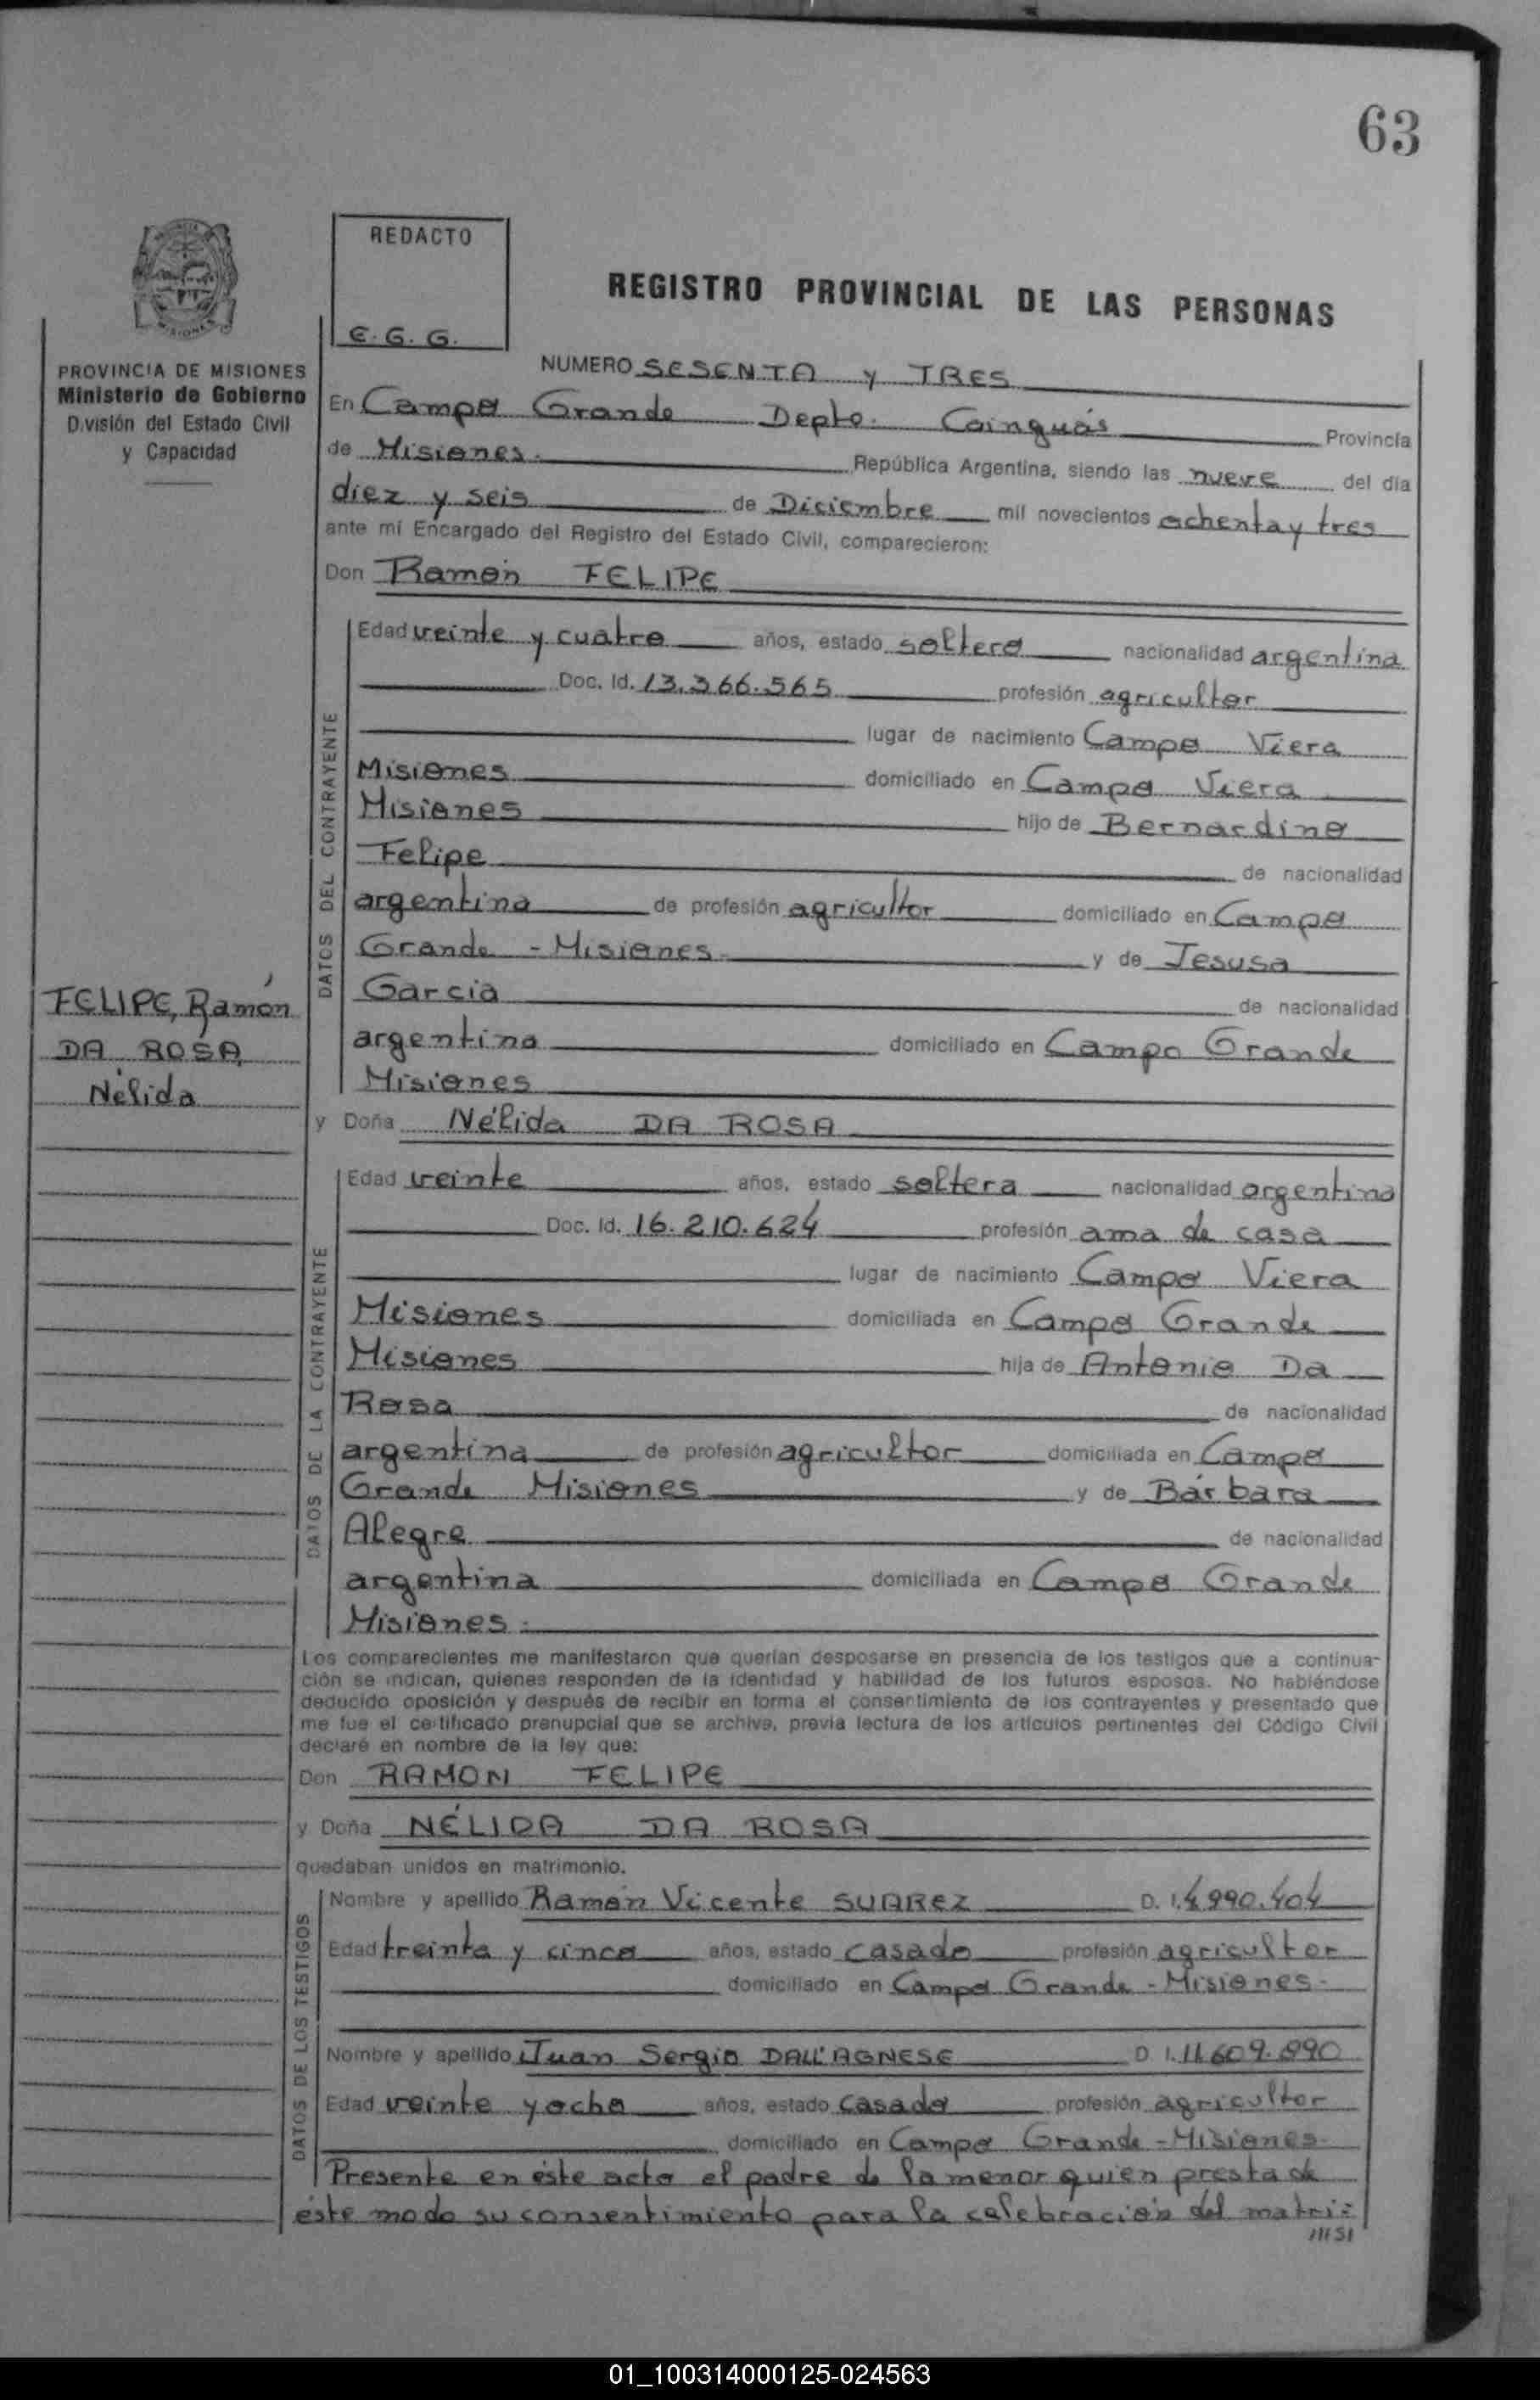 63
REDACTO
E. G. G.
REGISTRO PROVINCIAL DE LAS PERSONAS
PROVINCIA DE MISIONES
Ministerio de Gobierno
División del Estado Civil
y Capacidad
NUMERO SESENTA y TRES
En Campo Grande Depto. Cainguás Provincia
de Misiones. República Argentina, siendo las nueve del día
diez y seis de Diciembre mil novecientos ochenta y tres
ante mí Encargado del Registro del Estado Civil, comparecieron:
Don Ramón FELIPE
DATOS DEL CONTRAYENTE
Edad veinte y cuatro años, estado soltero nacionalidad argentina
Doc. Id. 13.366.565 profesión agricultor
lugar de nacimiento Campo Viera
Misiones domiciliado en Campo Viera
Misiones hijo de Bernardino
Felipe de nacionalidad
argentina de profesión agricultor domiciliado en Campo
Grande - Misiones. y de Jesusa
Garcia de nacionalidad
argentina domiciliado en Campo Grande
Misiones
FELIPE, Ramón
DA ROSA,
Nélida
y Doña Nélida DA ROSA
DATOS DE LA CONTRAYENTE
Edad veinte años, estado soltera nacionalidad argentina
Doc. Id. 16.210.624 profesión ama de casa
lugar de nacimiento Campo Viera
Misiones domiciliada en Campo Grande
Misiones hija de Antonio Da
Rosa de nacionalidad
argentina de profesión agricultor domiciliada en Campo
Grande Misiones y de Bárbara
Alegre de nacionalidad
argentina domiciliada en Campo Grande
Misiones.
Los comparecientes me manifestaron que querían desposarse en presencia de los testigos que a continua-
ción se indican, quienes responden de la identidad y habilidad de los futuros esposos. No habiéndose
deducido oposición y después de recibir en forma el consertimiento de los contrayentes y presentado que
me fue el certificado prenupcial que se archiva, previa lectura de los artículos pertinentes del Código Civil
declaré en nombre de la ley que:
Don RAMON FELIPE
y Doña NÉLIDA DA ROSA
quedaban unidos en matrimonio.
DATOS DE LOS TESTIGOS
Nombre y apellido Ramón Vicente SUAREZ D. I. 4.990.404
Edad treinta y cinco años, estado casado profesión agricultor
domiciliado en Campo Grande - Misiones.
Nombre y apellido Juan Sergio DALL'AGNESE D. I. 11.609.890
Edad veinte y ocho años, estado casado profesión agricultor
domiciliado en Campo Grande - Misiones.
Presente en éste acto el padre de la menor quien presta de
éste modo su consentimiento para la celebración del matri=
01_100314000125-024563